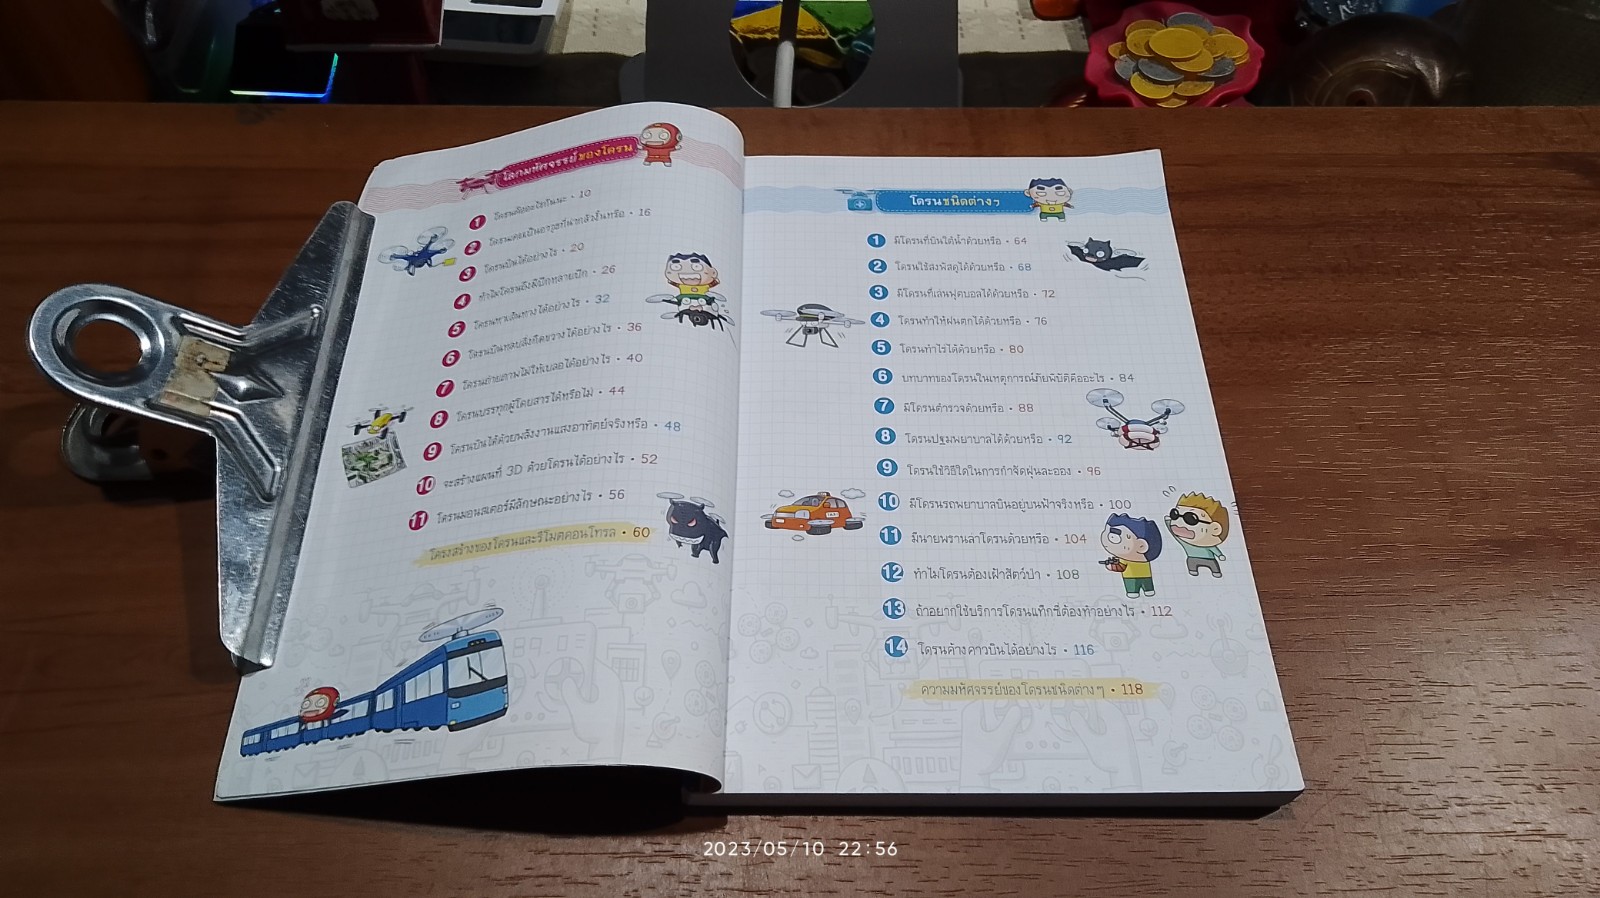 โลกมหัศจรรย์ของโดรน
1 โดรนคืออะไรกันนะ • 10
2 โดรนเคยเป็นอาวุธที่น่ากลัวงั้นหรือ • 16
3 โดรนบินได้อย่างไร • 20
4 ทำไมโดรนถึงมีปีกหลายปีก • 26
5 โดรนหาเส้นทางได้อย่างไร • 32
6 โดรนบินหลบสิ่งกีดขวางได้อย่างไร • 36
7 โดรนถ่ายภาพไม่ให้เบลอได้อย่างไร • 40
8 โดรนบรรทุกผู้โดยสารได้หรือไม่ • 44
9 โดรนบินได้ด้วยพลังงานแสงอาทิตย์จริงหรือ • 48
10 จะสร้างแผนที่ 3D ด้วยโดรนได้อย่างไร • 52
11 โดรนมอนสเตอร์มีลักษณะอย่างไร • 56
โครงสร้างของโดรนและรีโมตคอนโทรล • 60
โดรนชนิดต่างๆ
1 มีโดรนที่บินใต้น้ำด้วยหรือ • 64
2 โดรนใช้ส่งพัสดุได้ด้วยหรือ • 68
3 มีโดรนที่เล่นฟุตบอลได้ด้วยหรือ • 72
4 โดรนทำให้ฝนตกได้ด้วยหรือ • 76
5 โดรนทำไร่ได้ด้วยหรือ • 80
6 บทบาทของโดรนในเหตุการณ์ภัยพิบัติคืออะไร • 84
7 มีโดรนตำรวจด้วยหรือ • 88
8 โดรนปฐมพยาบาลได้ด้วยหรือ • 92
9 โดรนใช้วิธีใดในการกำจัดฝุ่นละออง • 96
10 มีโดรนรถพยาบาลบินอยู่บนฟ้าจริงหรือ • 100
11 มีนายพรานล่าโดรนด้วยหรือ • 104
12 ทำไมโดรนต้องเฝ้าสัตว์ป่า • 108
13 ถ้าอยากใช้บริการโดรนแท็กซี่ต้องทำอย่างไร • 112
14 โดรนค้างคาวบินได้อย่างไร • 116
ความมหัศจรรย์ของโดรนชนิดต่างๆ • 118
2023/05/10 22:56